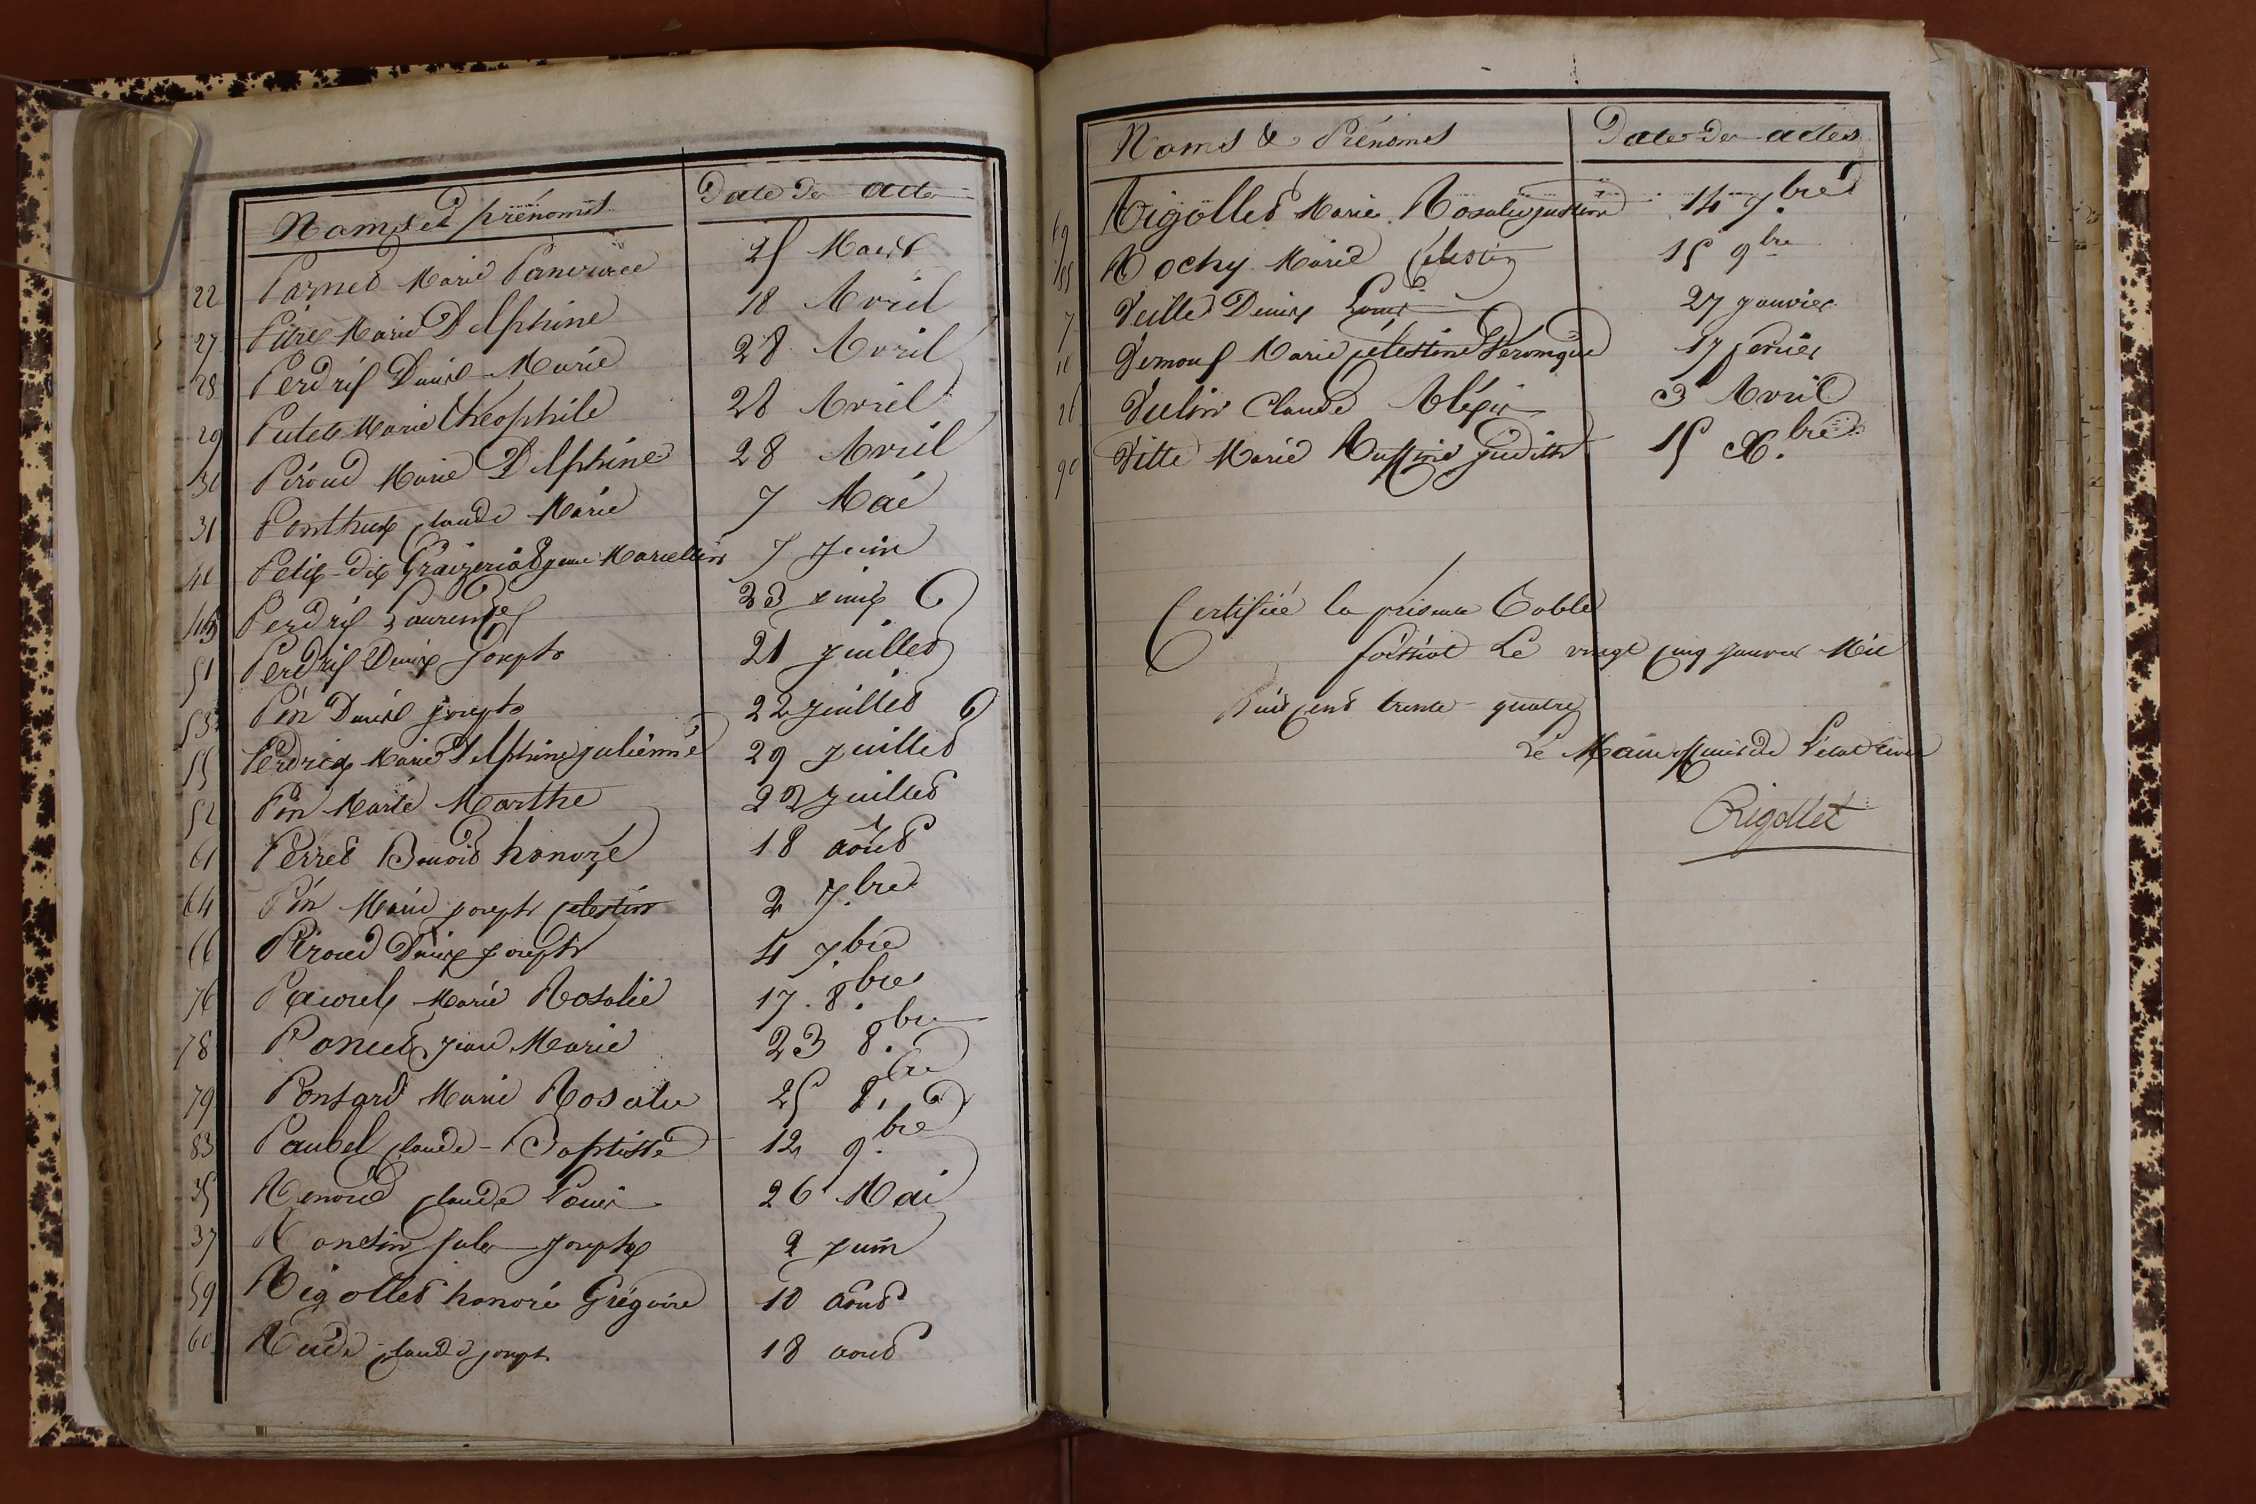 Noms et prénoms Date des actes
22 Parnet Marie Pancrace 25 Mars
27 Pitre Marie Delphine 18 Avril
28 Perdrix Denise Marie 28 Avril
29 Putet Marie théophile 28 Avril
30 Péroud Marie Delphine 28 Avril
31 Ponthus claude Marie 7 Mai
41 Petit-dit Graizeriat Marcellin 7 Juin
Perdrix Laurent 23 Juin
51 Perdrix Denis Joseph 21 Juillet
53 Pin Denise Joseph 22 juillet
55 Perdrix Marie Delphine julienne 29 Juillet
52 Pin Marie Marthe 22 Juillet
61 Perret Benoit honoré 18 août
64 Pin Marie joseph celestin 2 7.bre
66 Péroud Denis Joseph 4 7.bre
76 Marie Rosalie 17. 8.bre
78 Poncet Jean Marie 23 8.bre
79 Ponsard Marie Rosalie 25 8.bre
83 Paubel claude-Baptiste 12 9.bre
35 Renoud claude Louis 26 Mai
37 Ronclin Jules Joseph 2 Juin
59 Rigollet honoré Grégoire 10 août
60 Rude claude joseph 18 août
Noms & Prénoms Date des actes
69 Rigollet Marie Rosalie justine 14 7.bre
85 Rochy Marie Celestin 15 9bre
7 Veille Denis Louis 27 Janvier
11 Vernoux Marie célestine Véronique 17 fevrier
26 Vulin Claude Alexis 3 Avril
90 Vitte Marie Judith 15 X.bre
Certifiée la présente Table
Le vingt cinq Janvier Mil
huit cent trente-quatre
Le Maire officier de l'état civil
Rigollet